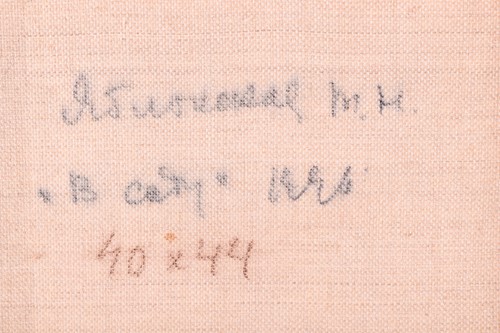 Яблонская Т.Н.
"В саду" 1996
40 x 44